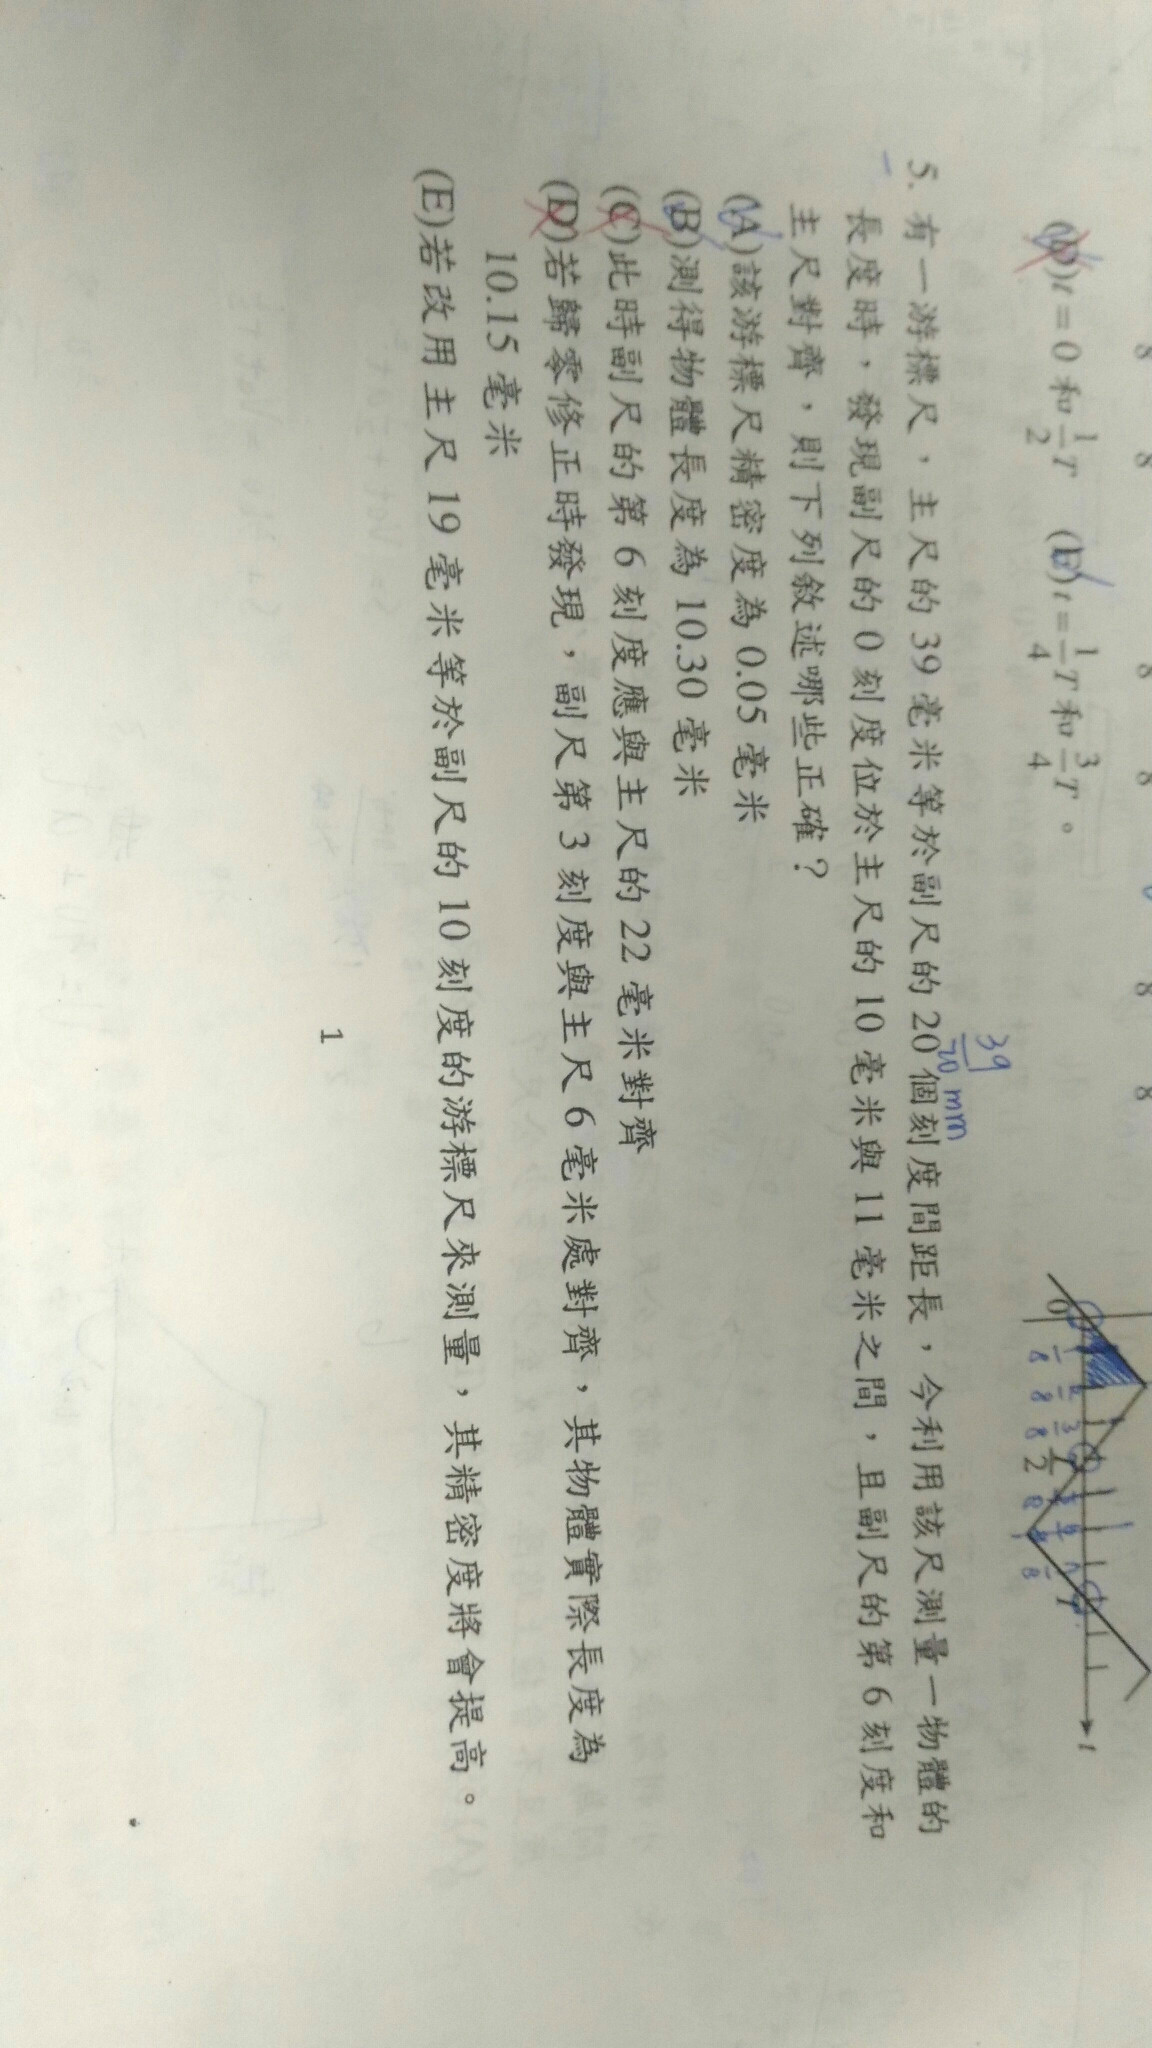 8 8 8 8 8 8
(D)t = 0 和 1/2 T (E)t = 1/4 T 和 3/4 T。
0 T/2 T t
39/20 mm
5. 有一游標尺，主尺的 39 毫米等於副尺的 20 個刻度間距長，今利用該尺測量一物體的
長度時，發現副尺的 0 刻度位於主尺的 10 毫米與 11 毫米之間，且副尺的第 6 刻度和
主尺對齊，則下列敘述哪些正確？
(A)該游標尺精密度為 0.05 毫米
(B)測得物體長度為 10.30 毫米
(C)此時副尺的第 6 刻度應與主尺的 22 毫米對齊
(D)若歸零修正時發現，副尺第 3 刻度與主尺 6 毫米處對齊，其物體實際長度為
10.15 毫米
(E)若改用主尺 19 毫米等於副尺的 10 刻度的游標尺來測量，其精密度將會提高。
1